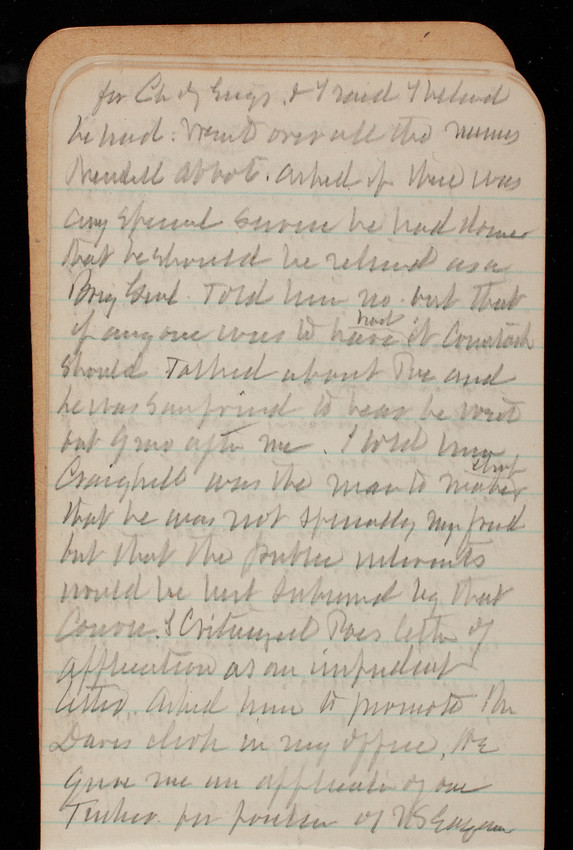 for Ch of Engs. & I said I believed
he had. Went over all the names
Abbot. Asked if there was
any special service he had done
that he should be retired as a
Brig Genl. Told him no. but that
if anyone was to have had it Comstock
should. Talked about Poe and
he was surprised to hear he went
but Grav after me. I told him
Craighill was the man to
that he was not specially my friend
but that the public interests
would be best subserved by that
Course. I Criticized Poes letter of
application as an impudent
letter. Asked him to promote Mr
Davis clerk in my office. He
gave me an application of one
for position of US